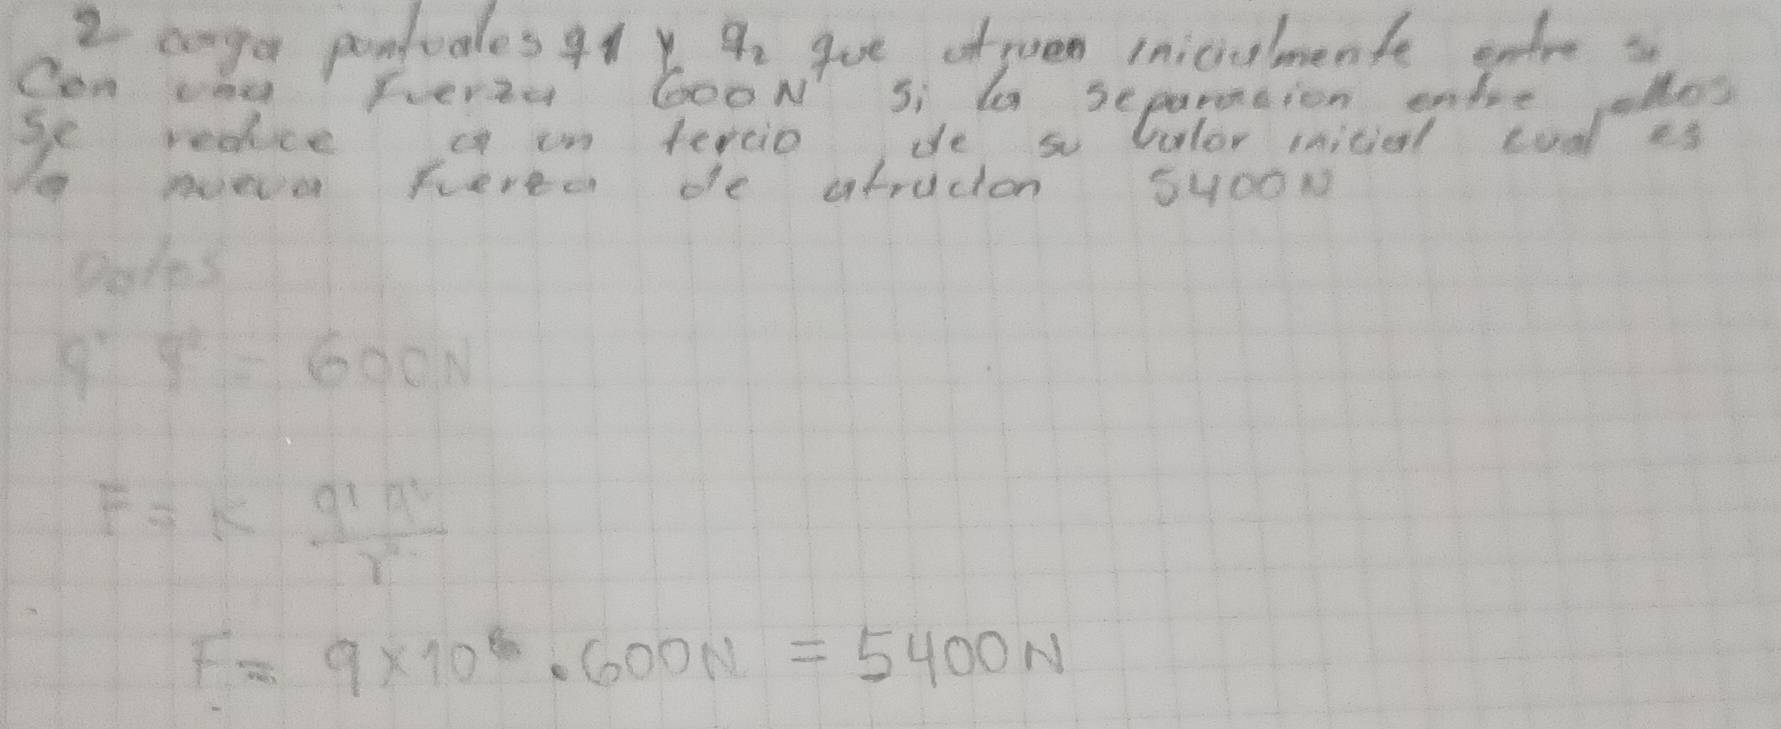 2 carga puntuales q1 y q2 que atraen inicialmente entre si
Con una Fuerza 600N si la separacion entre ellos
se reduce a un tercio de su valor inicial cual es
la nueva Fuerza de atracion 5400N
Datos
q¹ q² = 600N
F = K q¹ q²
r²
F = 9×10⁰ · 600N = 5400N